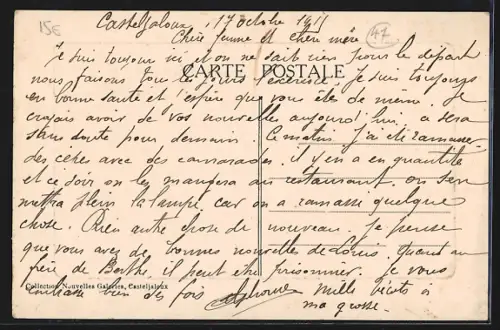 15€
Casteljaloux, 17 Octobre 1915
47
Chère femme et chère mère
Je suis toujours ici et on ne sait rien pour le départ
nous faisons tous les jours l'exercice. Je suis toujours
CARTE POSTALE
en bonne santé et j'espère que vous êtes de même. Je
croyais avoir de vos nouvelles aujourd'hui. ce sera
sans doute pour demain. Ce matin j'ai été ramasser
des cèpes avec des camarades. il y en a en quantité
et ce soir on les mangera au restaurant. on s'en
mettra plein la lampe car on a ramassé quelque
chose. Rien autre chose de nouveau. Je pense
que vous avez de bonnes nouvelles de Louis. Quant au
frère de Berthe il peut être prisonnier. Je vous
Collection Nouvelles Galeries, Casteljaloux
embrasse bien des fois Alphonse mille bécots à
ma grosse.